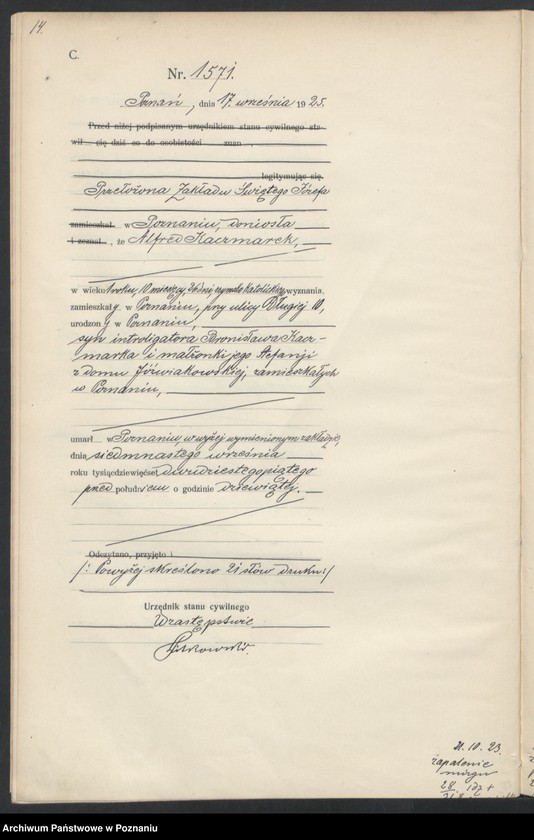 14.
C.
Nr. 1571.
Poznań, dnia 17. września 1925.
Przed niżej podpisanym urzędnikiem stanu cywilnego sta-
wił się dziś co do osobistości znan
legitymując się
Przełożona Zakładu Świętego Józefa
zamieszkał w Poznaniu, doniosła
i zeznał, że Alfred Kaczmarek,
w wieku 1 roku, 10 miesięcy, 26 dni, rzymsko katolickiego wyznania,
zamieszkały w Poznaniu, przy ulicy Długiej 10,
urodzony w Poznaniu,
syn introligatora Bronisława Kacz-
marka i małżonki jego Stefanji
z domu Jóźwiakowskiej, zamieszkałych
w Poznaniu,
umarł w Poznaniu, w wyżej wymienionym zakładzie,
dnia siedmnastego września
roku tysiącdziewięćset dwudziestegopiątego
przed południem o godzinie dziewiątej.
Odczytano, przyjęto i
/: Powyżej skreślono 21 słów druku :/
Urzędnik stanu cywilnego
W zastępstwie
21.10.23.
zapalenie
mózgu
28
Archiwum Państwowe w Poznaniu